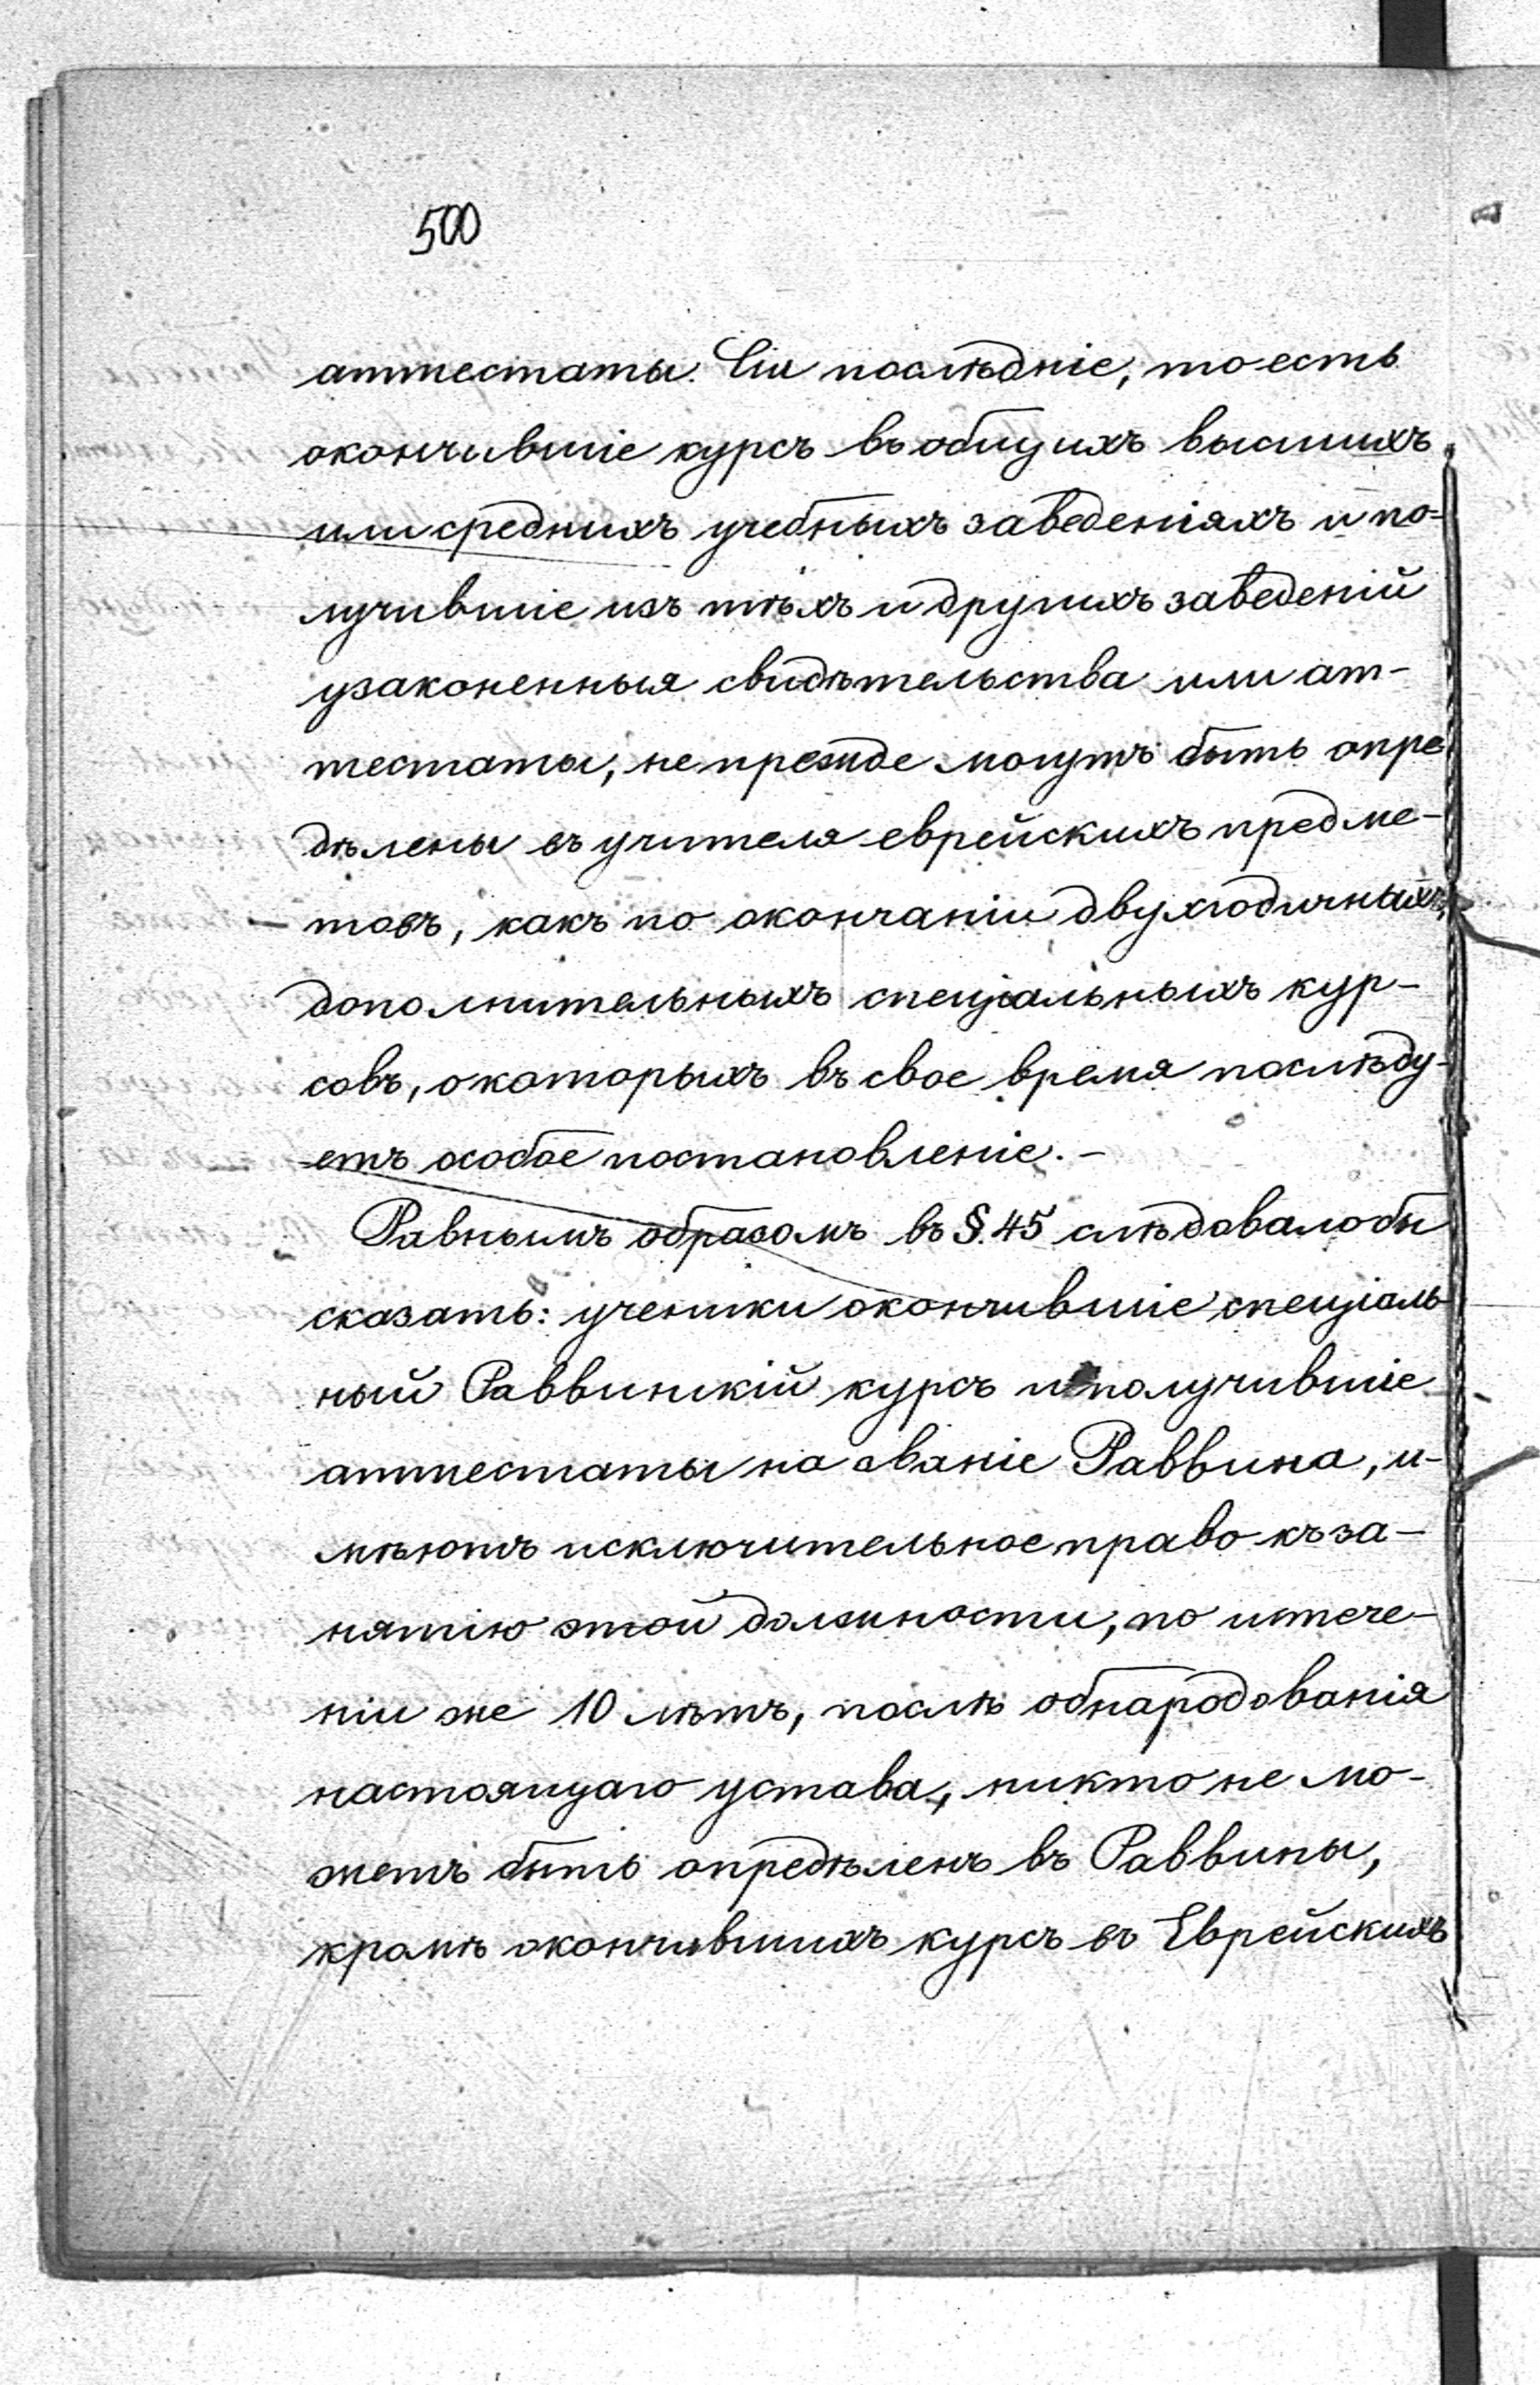 500
аттестаты. Сіи послѣдніе, то есть
окончившіе курсъ въ общихъ высшихъ
или среднихъ учебныхъ заведеніяхъ и по-
лучившіе изъ тѣхъ и другихъ заведеній
узаконенныя свидѣтельства или ат-
тестаты, не прежде могутъ быть опре
дѣлены въ учителя еврейскихъ предме-
товъ, какъ по окончаніи двухгодичныхъ
дополнительныхъ спеціальныхъ кур-
совъ, о которыхъ въ свое время послѣду-
етъ особое постановленіе.-
Равнымъ образомъ въ §.45 слѣдовало бы
сказать: ученики окончившіе спеціаль
ный Раввинскій курсъ и получившіе
аттестаты на званіе Раввина, и-
мѣютъ исключительное право къ за-
нятію этой должности, по истече-
ніи же 10 лѣтъ, послѣ обнародованія
настоящаго устава, никто не мо-
жетъ быть опредѣленъ въ Раввины,
кромѣ окончившихъ курсъ въ Еврейскихъ